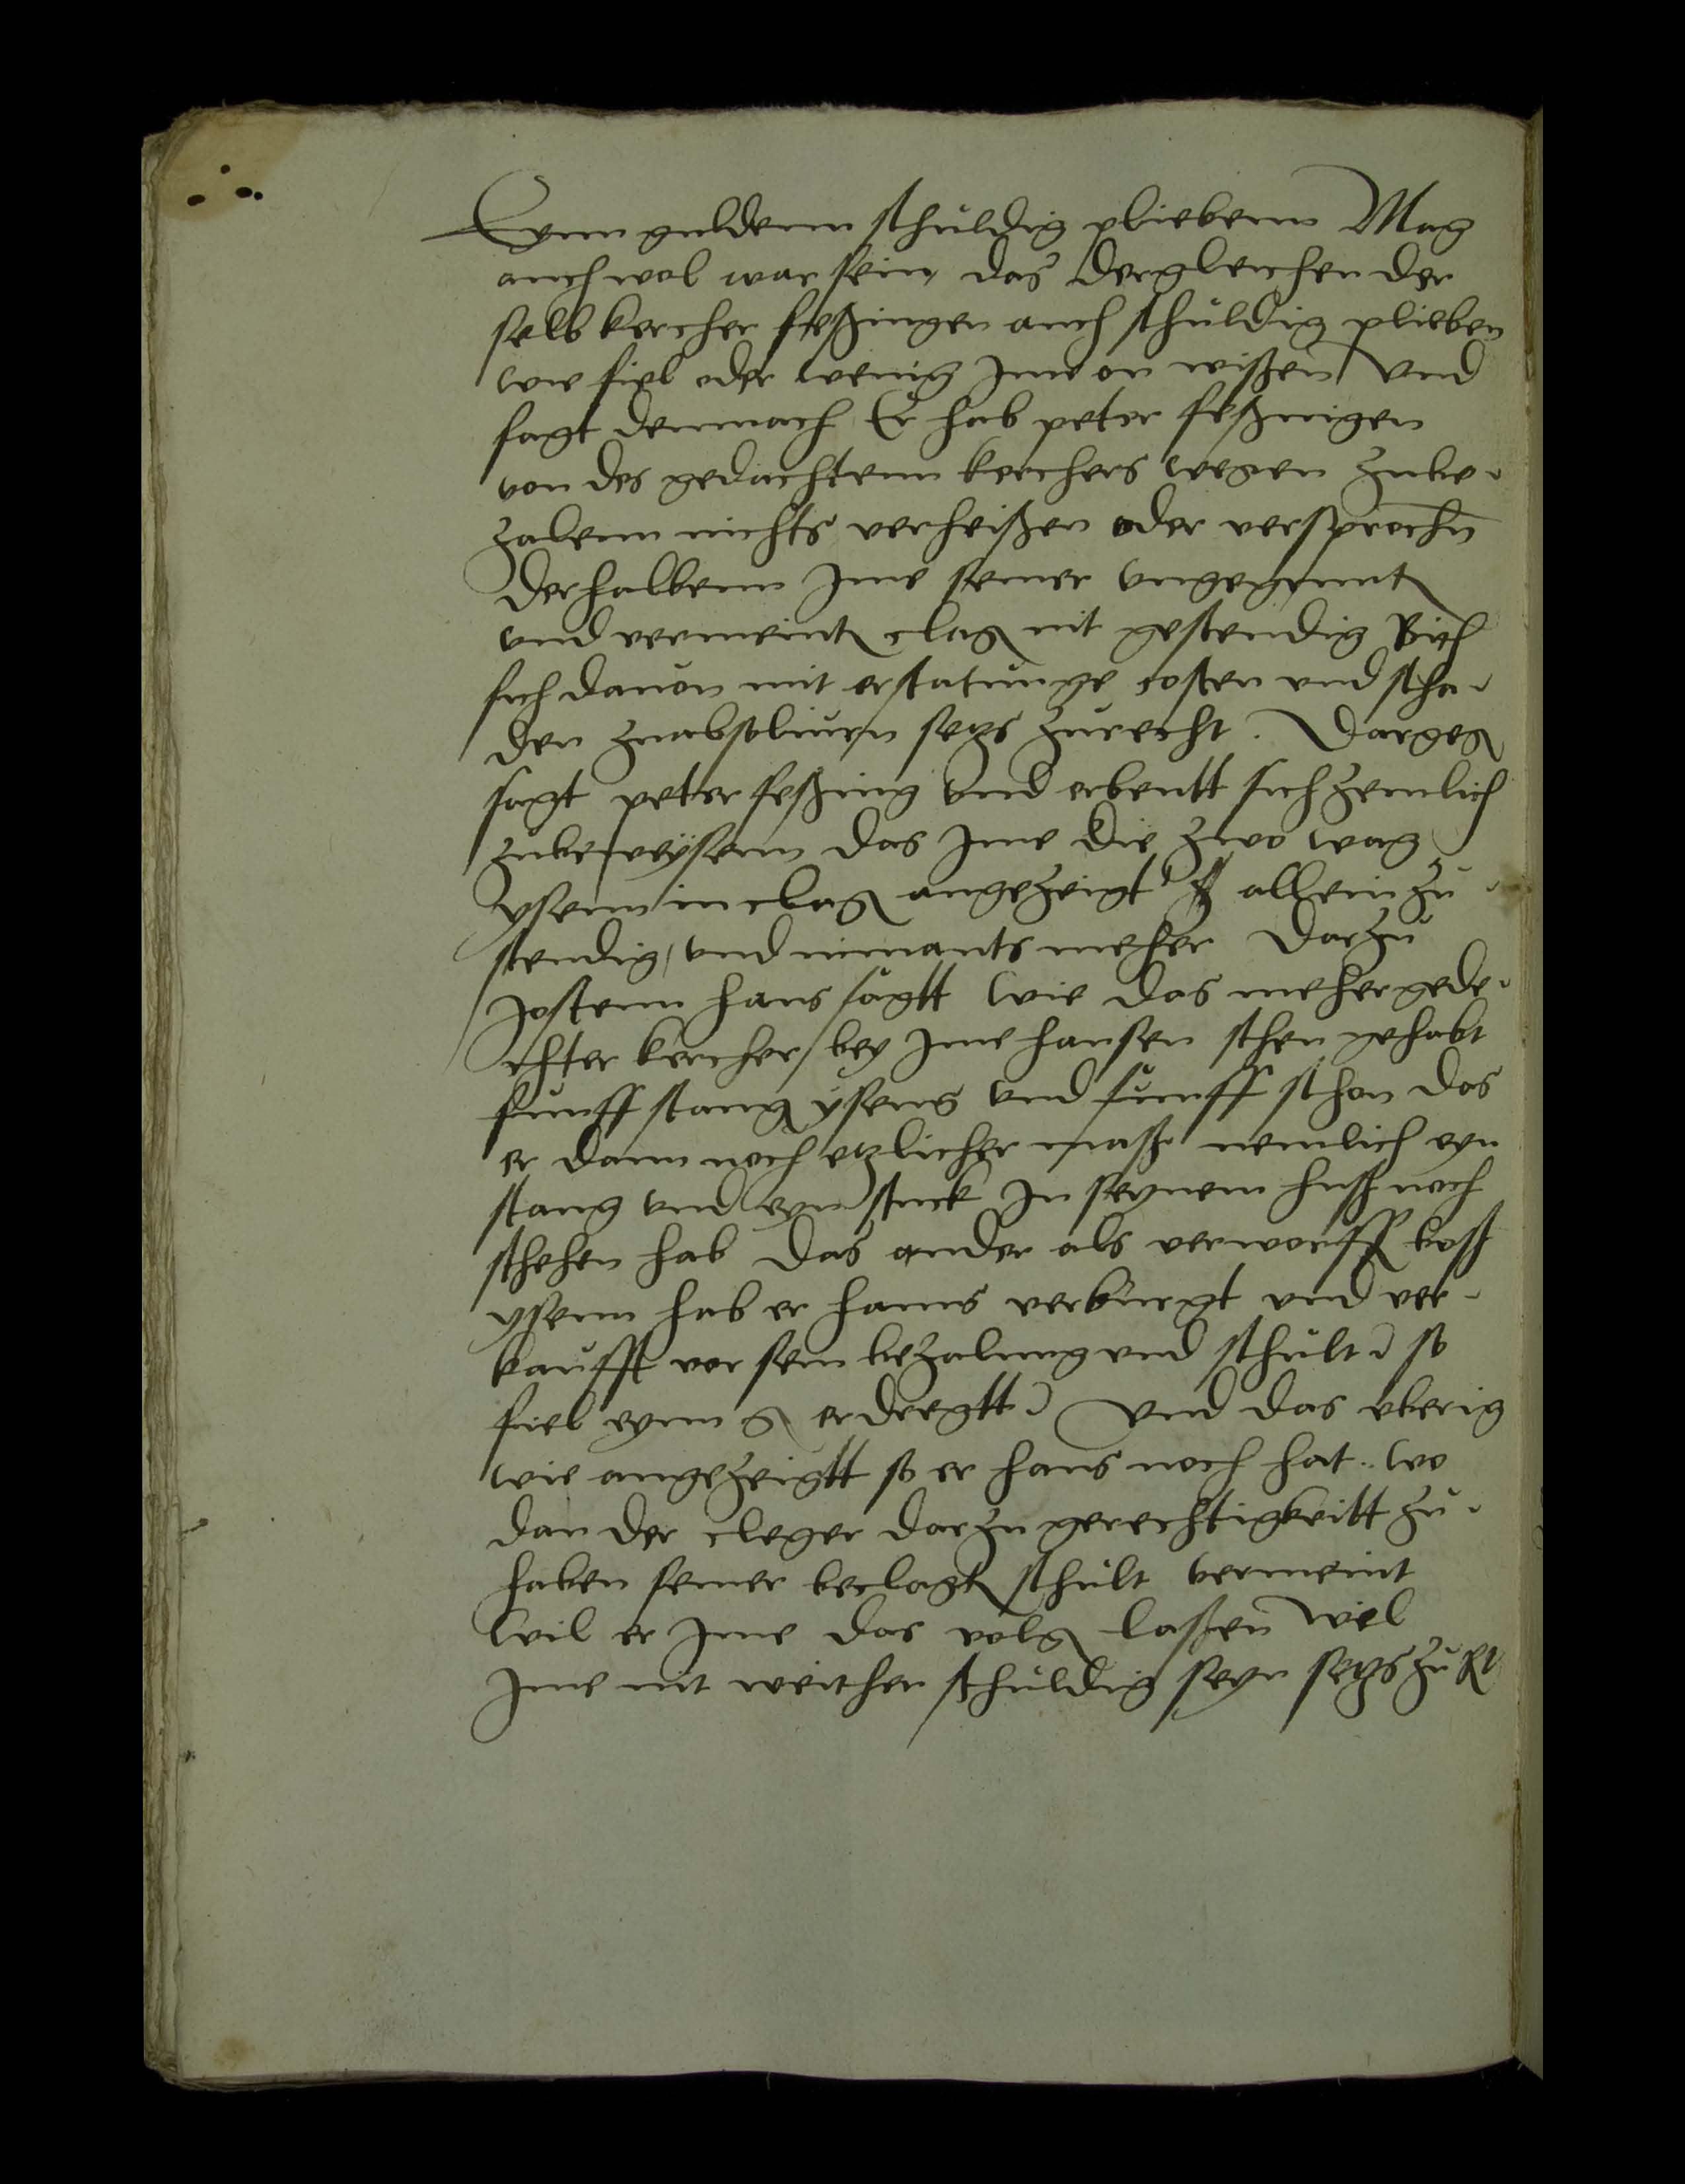 Eynn guldenn schuldig pliebenn Mag
auch wol war sein, das dergleichen der
selb kercher feßingen auch schuldig plieben
wie fiel oder wenig Ime on wißen, Vnd
sagt demnach Er hab peter feßingen
von des gedachtenn kerchers wegen zube-
zalenn nichts verheißen oder versprochen
Derhalbenn Ime seiner
vnd vermeint clag nit gestendig Bith
sich dauon mit erstatunge costen vnd scha-
den zuabsoluirn setzs zurecht. Dargeg
sagt peter feßing vnd erbeutt sich zemlich
zubeweysenn das Ime die zwo wag
ysenn in clag angezeigt allein zu-
stendig, vnd nimants meher Darzu
Jostenn hans sagtt wie das meher gede-
chter kercher, bey Ime hansen sthen gehabt
funff stang ysens vnd funff schon das
er dann noch etzlicher maß nemlich eyn
stang vnd eyn stuck In seynem huß noch
sthehen hab das ander als verworff boß
ysenn hab er hanns verburgt vnd ver-
kaufft vor sein bezalung vnd schult so
fiel eynn g erdregtt Vnd das vberig
wie angezeigtt so er hans noch hat. wo
dan der cleger darzu gerechtigkeitt zu-
haben seiner beclagt schult vermeint
wil er Ime das volg laßen wil
Ime nit weither schuldig seyn setzs zu Rt